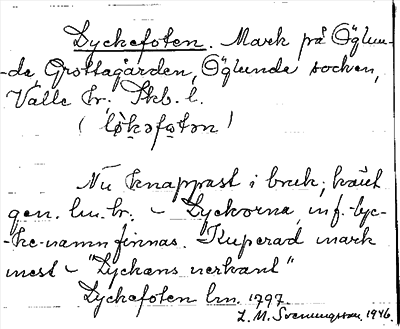 Lyckefoten. Mark på Öglun-
-da Grottagården, Öglunda socken,
Valle hr. Skb. l.
(lỏkəfotən)
Nu knappast i bruk,
gen. lm. hr. – Lyckorna, inf. -lyc-
-ke-namn finnas. Kuperad mark
mest – "Lyckans
Lyckefoten lm. 1797.
L. M. Svenungsson. 1946.